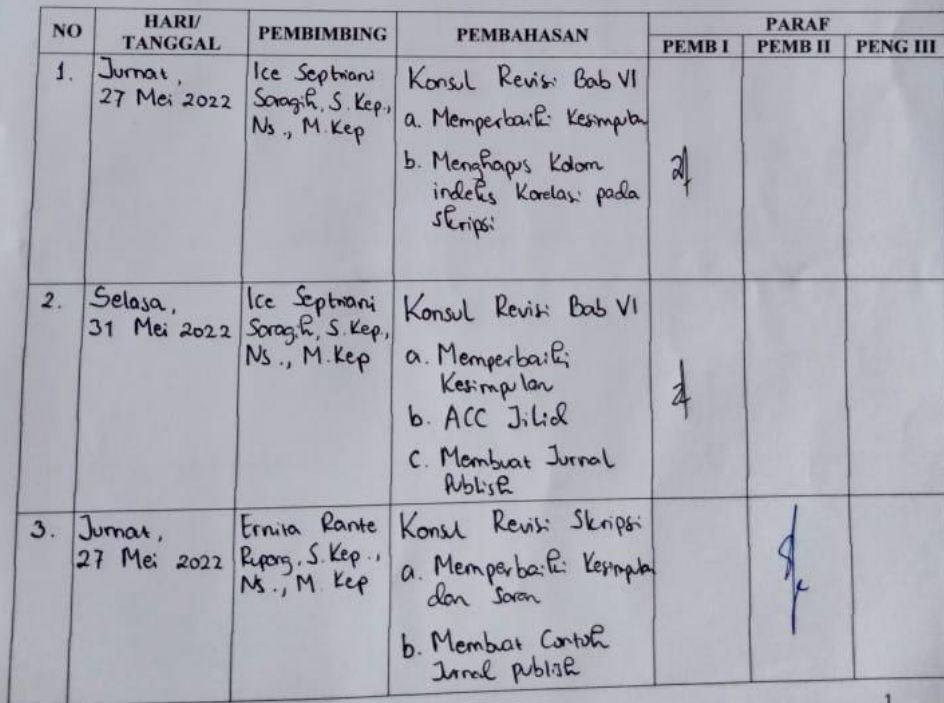 NO
HARI/
TANGGAL
PEMBIMBING
PEMBAHASAN
PARAF
PEMB I
PEMB II
PENG III
1.
Jumat,
27 Mei 2022
Ice Septriani
Saragih, S. Kep.,
Ns., M. Kep
Konsul Revisi Bab VI
a. Memperbaiki Kesimpulan
b. Menghapus Kolom
indeks Korelasi pada
skripsi
2.
Selasa,
31 Mei 2022
Ice Septriani
Saragih, S. Kep.,
Ns., M. Kep
Konsul Revisi Bab VI
a. Memperbaiki
Kesimpulan
b. ACC Jilid
c. Membuat Jurnal
Publish
3.
Jumat,
27 Mei 2022
Ernita Rante
Rupang, S. Kep.,
Ns., M. Kep
Konsul Revisi Skripsi
a. Memperbaiki Kesimpulan
dan Saran
b. Membuat Contoh
Jurnal publish
1